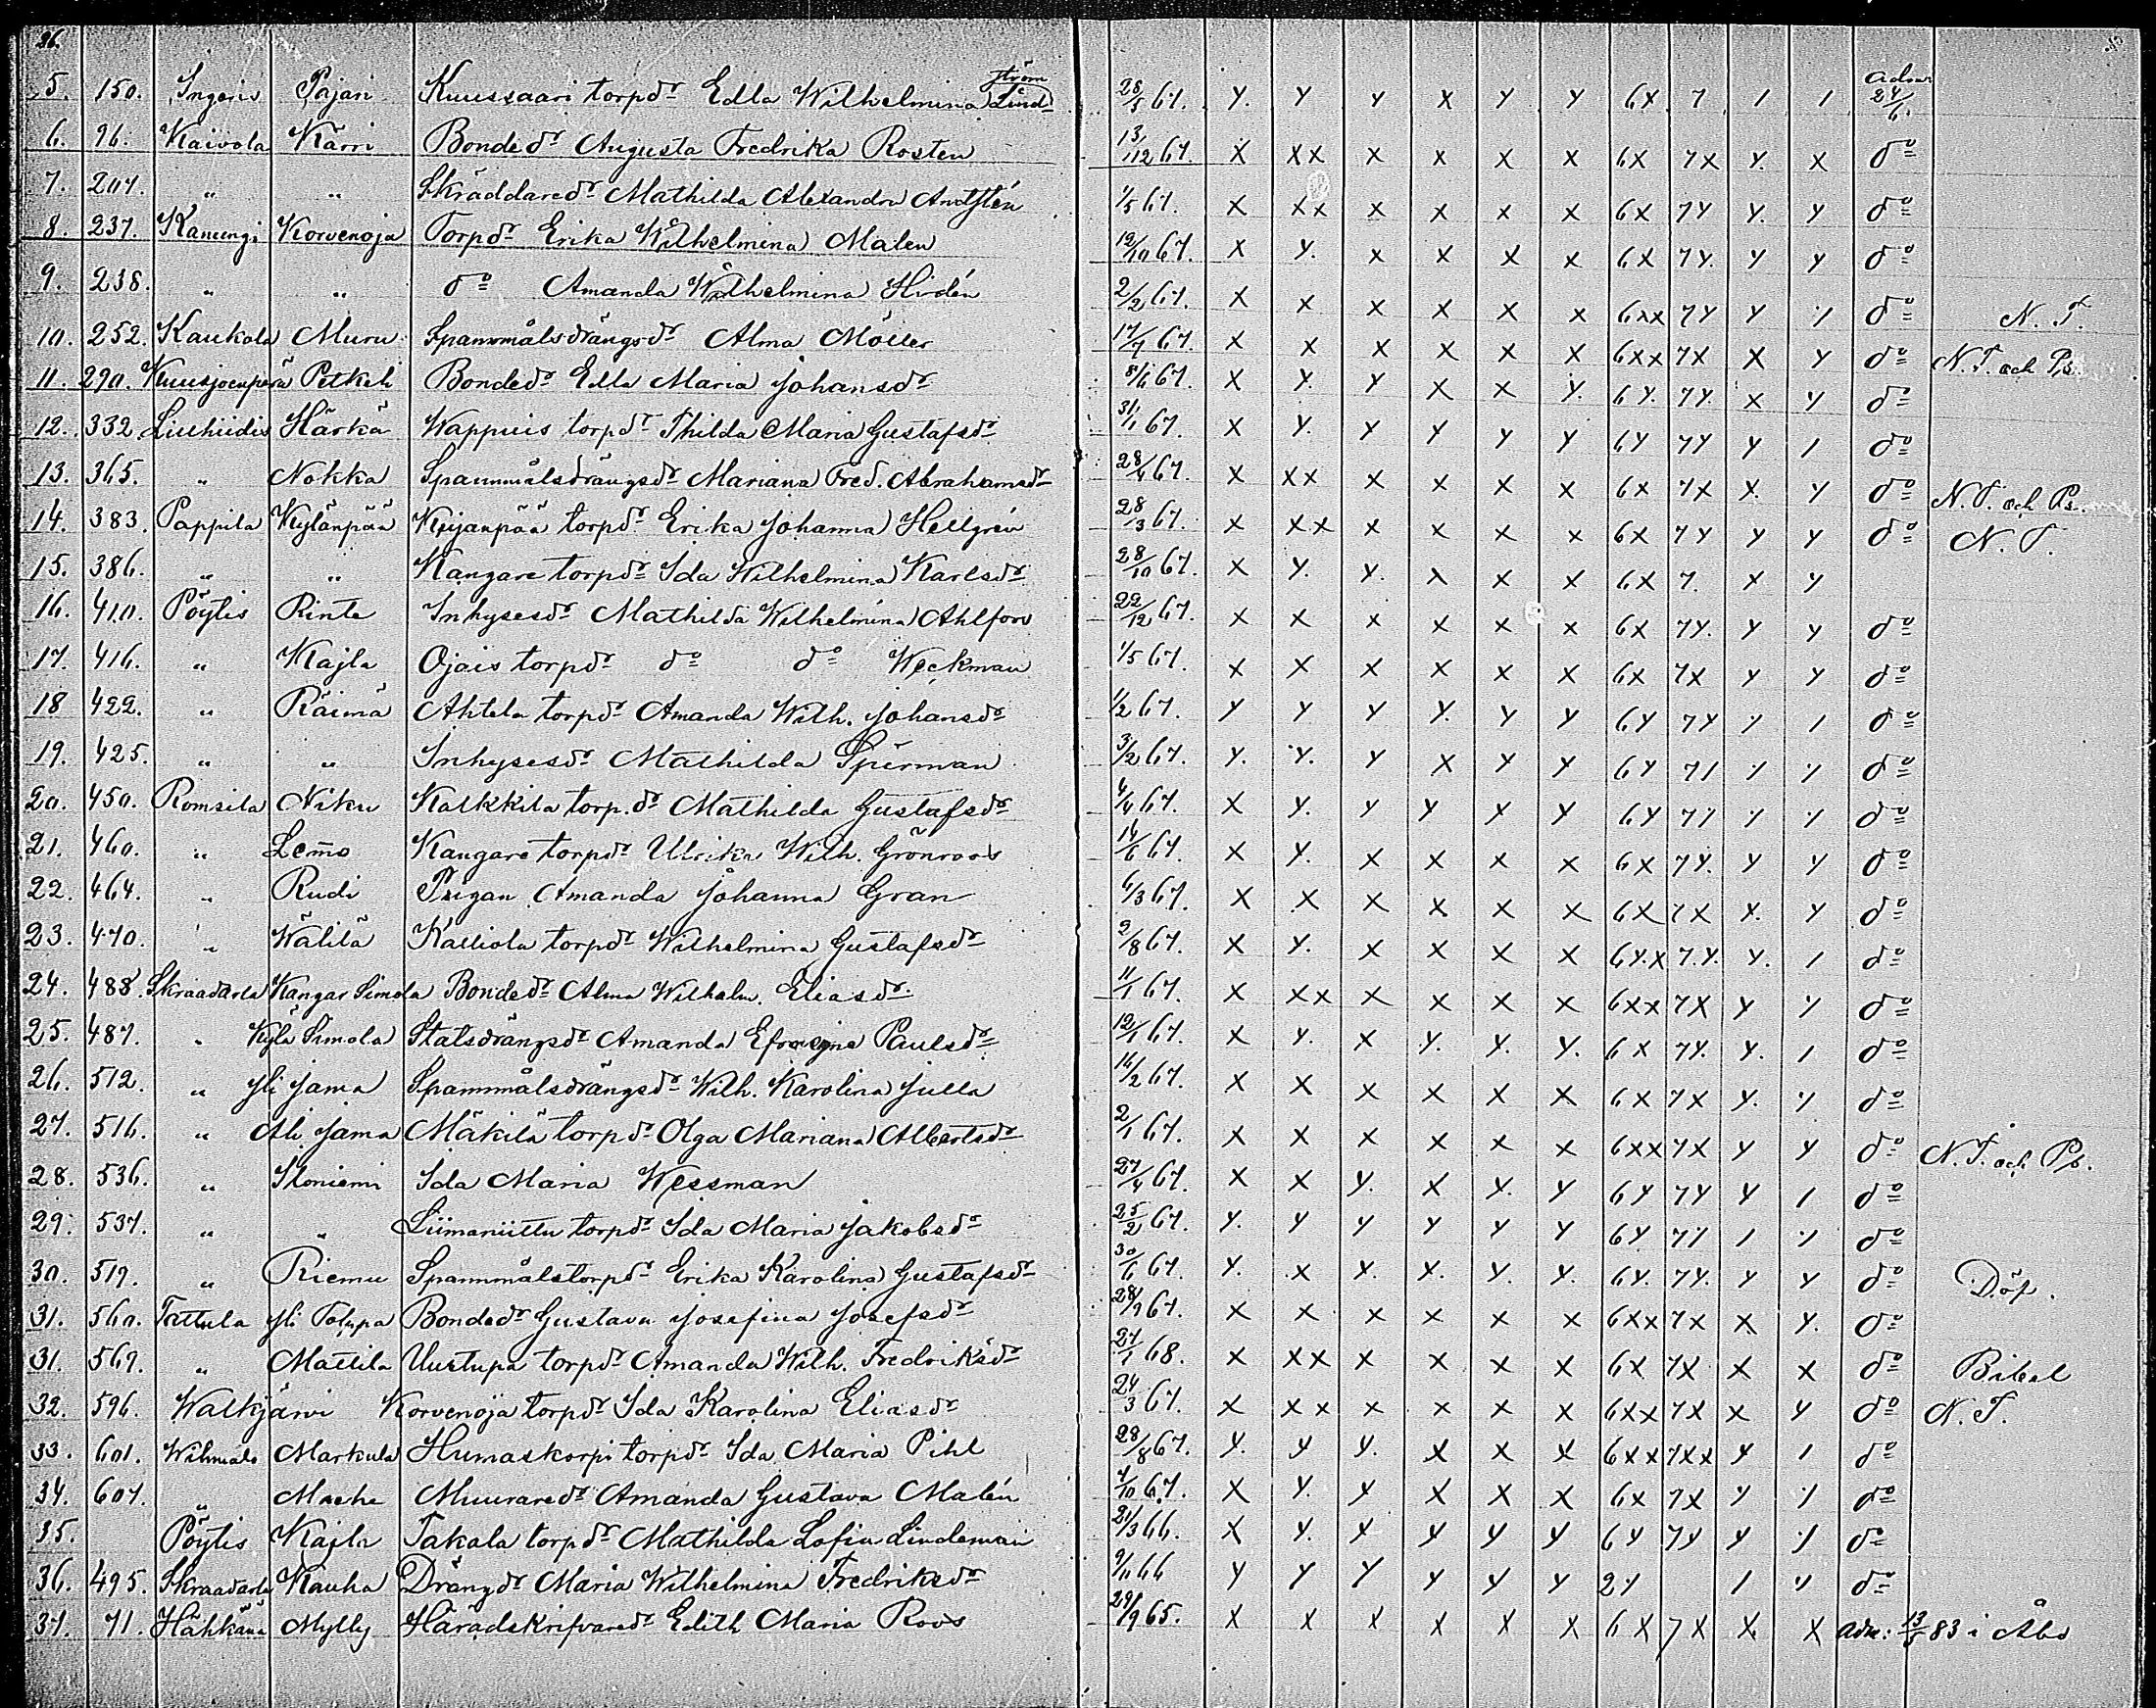 26.
5. 150. Ingeris Pajari Kuussaari torpdr Edla Wilhelmina Lindström 28/5 67. y. y y x y y 6x 7 / / adm 24/6.
6. 96. Kaivola Kärri Bondedr Augusta Fredrika Rosten 13/12 67. x xx x x x x 6x 7x y. x do
7. 207. " " Skräddaredr Mathilda Alexandra Andsten 1/5 67. x xx x x x x 6x 7y y. y do
8. 237. Kanungi Korvenoja Torpdr Erika Wilhelmina Malen 12/10 67. x y. x x x x 6x 7y. y y do
9. 238. " " do Amanda Wilhelmina Hidén 2/2 67. x x x x x x 6xx 7y y y do N. T.
10. 252. Kaukola Muru Spannmålsdrängsdr Alma Möller 17/7 67. x x x x x x 6xx 7x x y do N. T. och Ps.
11. 290. Kuusjoenperä Petkeli Bondedr Edla Maria Johansdr 8/6 67. x y. y x x y. 6y. 7y. x y do
12. 332. Liuhiidis Härkä Wappuis torpdr Thilda Maria Gustafsdr 31/1 67. x y. y y y y 6y 7y y / do
13. 365. " Nokka Spannmålsdrängsdr Mariana Fred. Abrahamsdr 28/4 67. x xx x x x x 6x 7x x. y do N. T. och Ps.
14. 383. Pappila Kylänpää Kujanpää torpdr Erika Johanna Hellgrén 28/3 67. x xx x x x x 6x 7y y y do N. T.
15. 386. " " Kangare torpdr Ida Wilhelmina Karlsdr 28/10 67. x y. y. x x x 6x 7. x y
16. 410. Pöytis Rinte Inhysesdr Mathilda Wilhelmina Ahlfors 22/12 67. x x x x x x 6x 7y. y y do
17. 416. " Kajla Ojais torpdr do do Weckman 1/5 67. x x x x x x 6x 7x y y do
18 422. " Räimä Ahtela torpdr Amanda Wilh. Johansdr 1/2 67. y y y y. y y 6y 7y y / do
19. 425. " " Inhysesdr Mathilda Spérman 3/2 67. y. y. y x y y 6y 7/ y y do
20. 450. Romsila Niku Kalkkila torp.dr Mathilda Gustafsdr 4/4 67. x y. y y y y 6y 7/ y y do
21. 460. " Lem̄o Kangare torpdr Ulrika Wilh. Grönroos 14/6 67. x y. x x x x 6x 7y. y y do
22. 464. " Rudi Pigan Amanda Johanna Gran 6/3 67. x x x x x x 6x 7x x. y do
23. 470. " Wälilä Kalliola torpdr Wilhelmina Gustafsdr 2/8 67. x y. x x x x 6y.x 7.y. y. / do
24. 488. Skraadarla Kangar Simola Bondedr Alma Wilhelm. Eliasdr 11/1 67. x xx x x x x 6xx 7x y y do
25. 487. " Kylä Simola Statsdrängsdr Amanda Efrosina Paulsdr 12/1 67. x y. x y. y. y. 6x 7y. y. / do
26. 512. " Yli Jama Spannmålsdrängsdr Wilh. Karolina Julla 16/2 67. x x x x x x 6x 7x y. y do
27. 516. " Ali Jama Mäkilä torpdr Olga Mariana Albertsdr 2/1 67. x x x x x x 6xx 7x y y do N. T. och Ps.
28. 536. " Iloniemi Ida Maria Wessman 27/4 67. x x y. x y. y 6y 7y y / do
29. 537. " " Liimaniittu torpdr Ida Maria Jakobsdr 25/2 67. y. y y y y y 6y 7/ / y do
30. 519. " Riemu Spannmålstorpdr Erika Karolina Gustafsdr 30/6 67. y. x y. x. y. y. 6y. 7y. y y do Döf.
31. 560. Tattula Yli Tolppa Bondedr Gustava Josefina Josefsdr 28/9 67. x x x x x x 6xx 7x x y. do
31. 569. " Mattila Uustupa torpdr Amanda Wilh. Fredriksdr 27/1 68. x xx x x x x 6x 7x x x do Bibel
32. 596. Walkjärvi Korvenoja torpdr Ida Karolina Eliasdr 24/3 67. x xx x x x x 6xx 7x x y do N. T.
33. 601. Wilniäls Markula Humaskorpi torpdr Ida Maria Pihl 28/8 67. y. y y. x x x 6xx 7xx y / do
34. 607. " Muuraredr Amanda Gustava Malén 4/10 67. x y. y x x x 6x 7x y y do
35. Pöytis Kajla Takala torpdr Mathilda Sofia Lindeman 21/3 66. x y. y y y y 6y 7y y y do
36. 495. Skraadarla Kauha Drängdr Maria Wilhelmina Fredriksdr 9/11 66 y y y y y y 2y / y do
37. 71. Hähkänä Mylly Häradskrifvaredr Edith Maria Roos 29/9 65. x x x x x x 6x 7x x x adm: 13/5 83 i Åbo